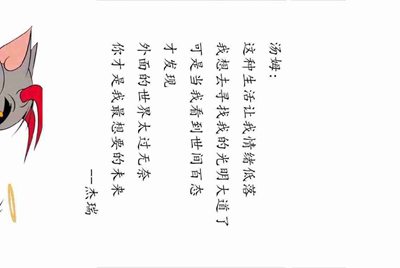 汤姆：
这种生活让我情绪低落
我想去寻找我的光明大道了
可是当我看到世间百态
才发现
外面的世界太过无奈
你才是我最想要的未来
--杰瑞